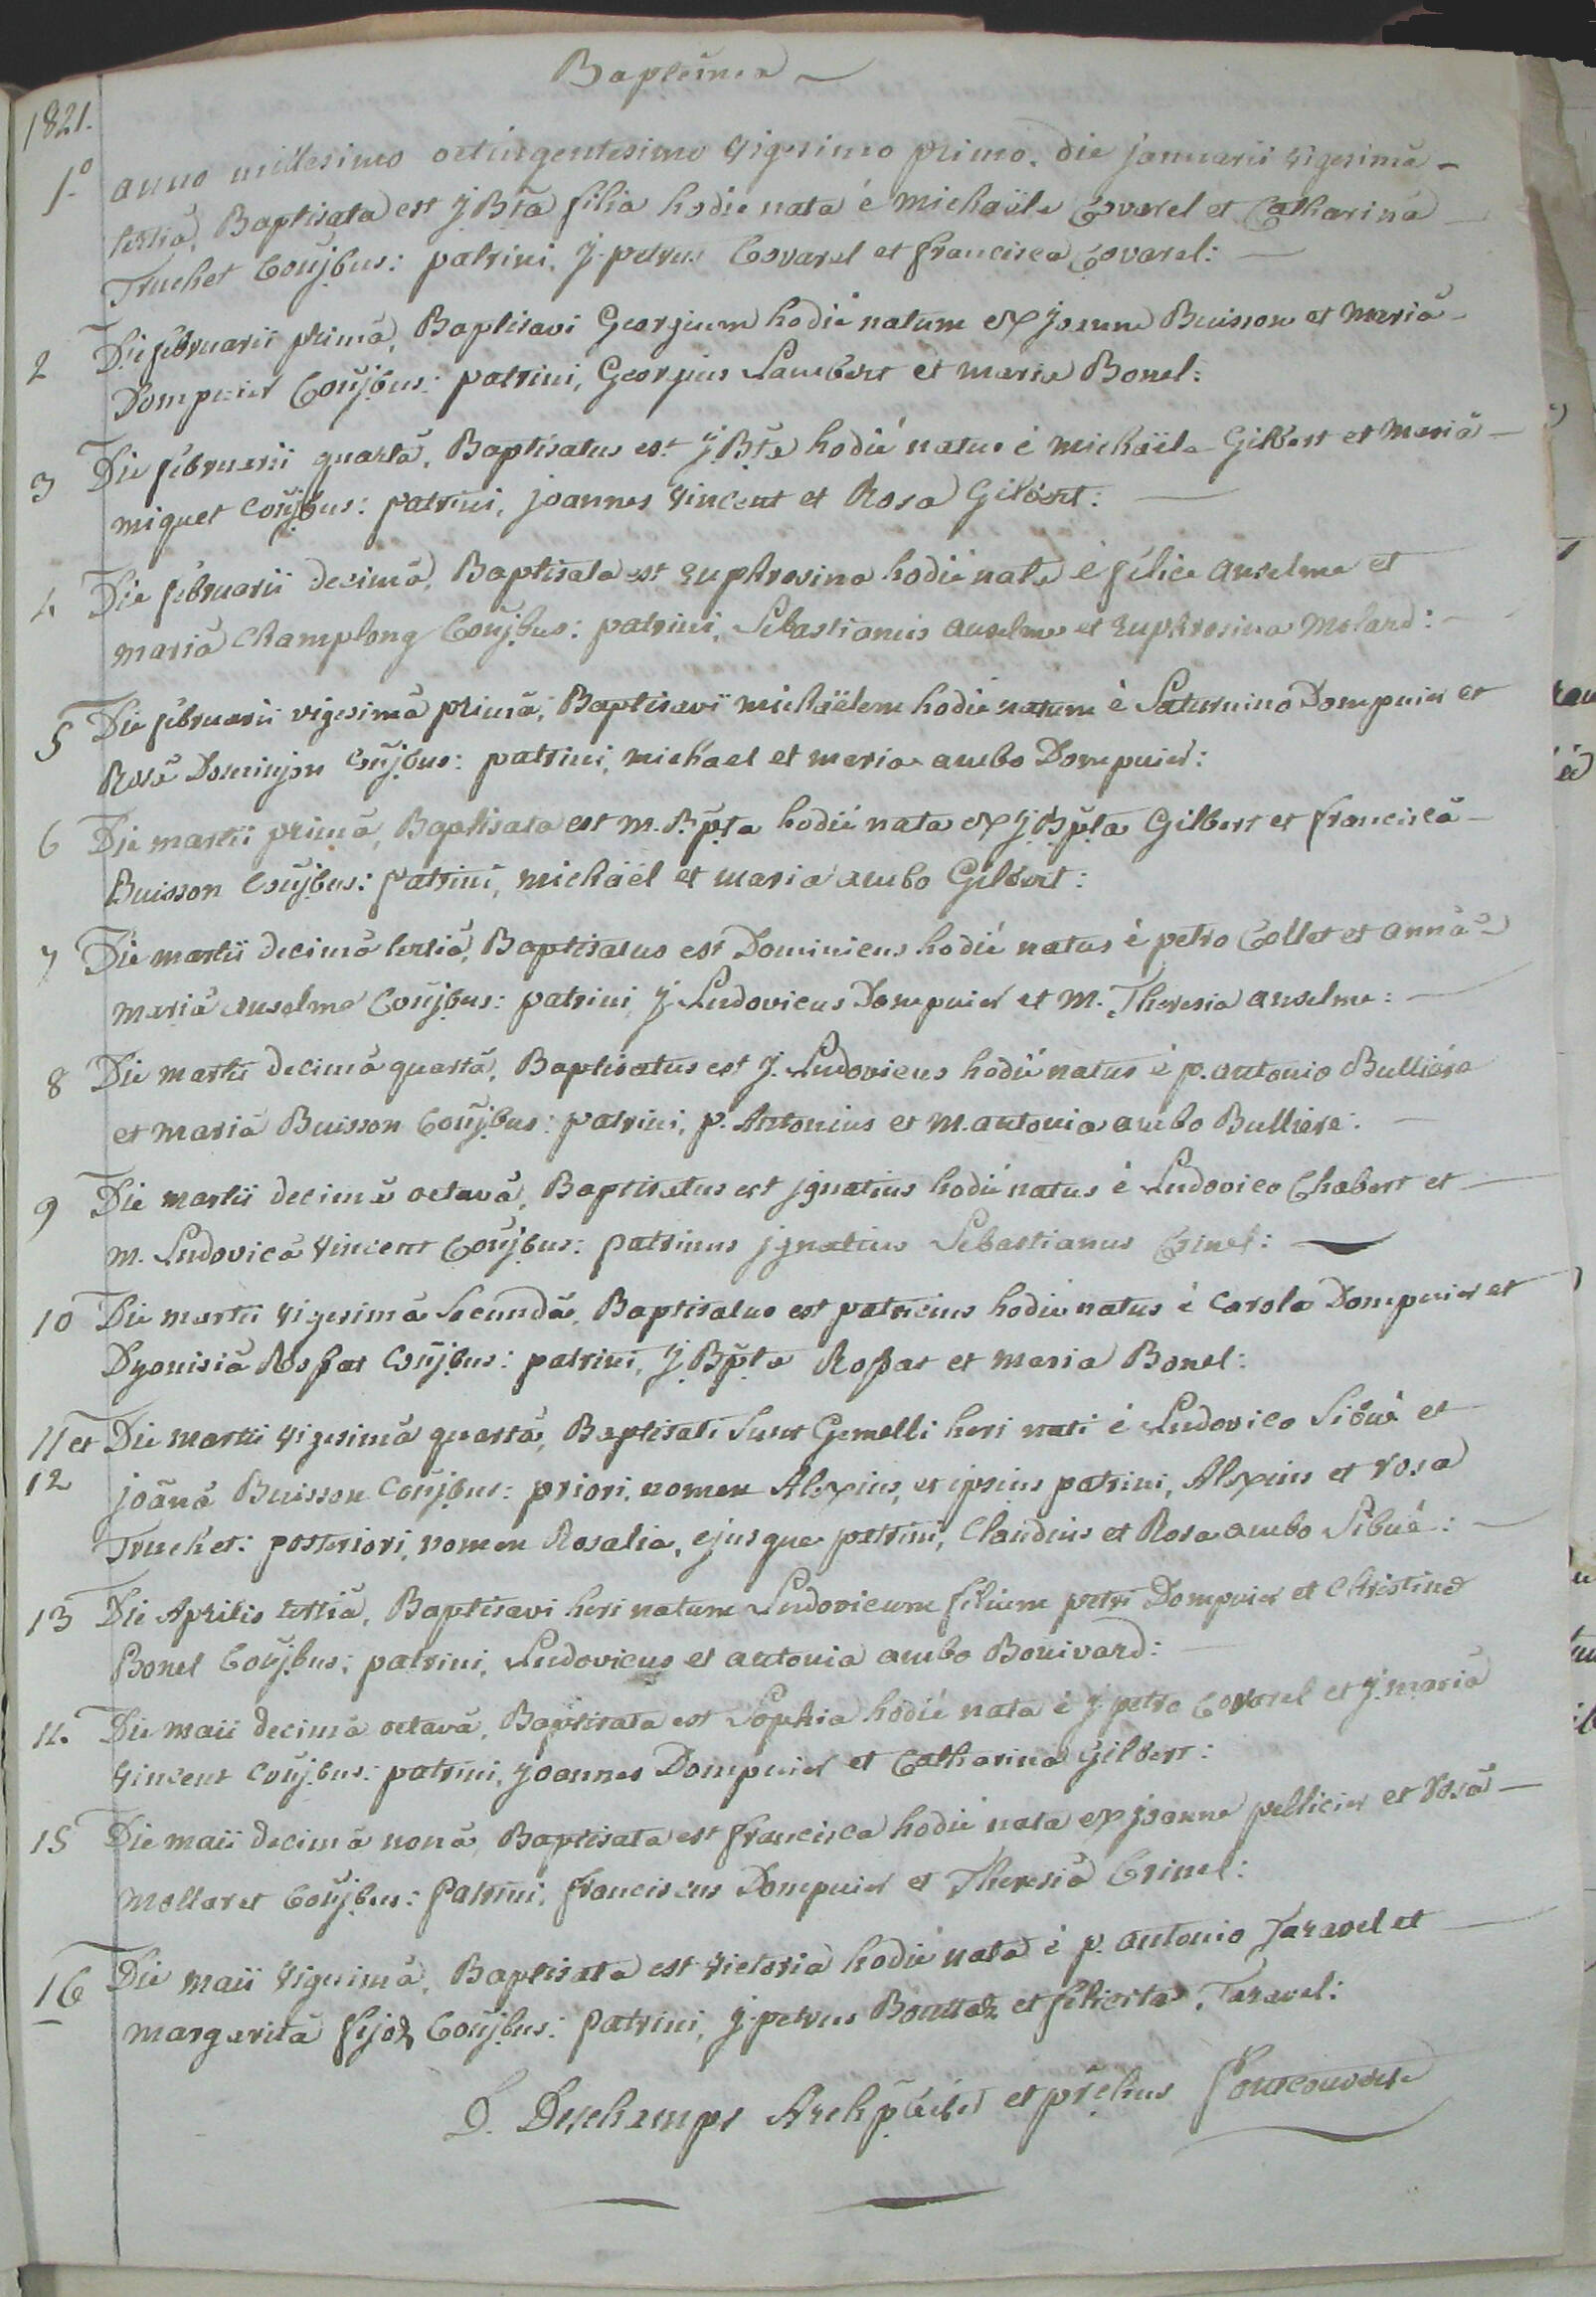 Baptêmes
1821.
1.º anno millesimo octingentesimo vigesimo primo, die januarii vigesimâ-
tertiâ, Baptisata est J Bta filia hodie nata è michaële Covarel et Catharinâ
Truchet Coñjbus: patrini, J. petrus Covarel et francisca Covarel:
2 Die februarii primâ, Baptisavi Georgium hodiè natum ex joanne Buisson et mariâ
Dompnier Coñjbus: patrini, Georgius Lambert et maria Bonel:
3 Die februarii quartâ, Baptisatus est J. Bte hodiè natus è michaële Gilbert et mariâ
miquet Coñjbus: patrini, joannes Vincent et Rosa Gilbert:
4 Die februarii decimâ, Baptisata est Euphrosina hodiè nata è félice anselme et
mariâ Champlong Coñjbus: patrini, Sebastianus anselme et Euphrosina Molard:
5 Die februarii vigesimâ primâ, Baptisavi michaëlem hodiè natum è Saturnino Dompnier et
Rosâ Dominjon Coñjbus: patrini, michael et maria ambo Dompnier:
6 Die martii primâ, Baptisata est M. Bpta hodiè nata ex J. Bpta Gilbert et franciscâ
Buisson Coñjbus: patrini, michaël et maria ambo Gilbert:
7 Die martii decimâ tertiâ, Baptisatus est Dominicus hodiè natus è petro Collet et annâ
mariâ anselme Coñjbus: patrini, J. Ludovicus Dompnier et M. Theresia anselme:
8 Die martii decimâ quartâ, Baptisatus est J. Ludovicus hodiè natus è p. antonio Bulliére
et mariâ Buisson Coñjbus: patrini, p. Antonius et M. antonia ambo Bulliere:
9 Die martii decimâ octavâ, Baptisatus est jgnatius hodiè natus è Ludovico Chabert et
m. Ludovicâ Vincent Coñjbus: patrinus jgnatius Sebastianus Crinel:
10 Die martii vigesimâ Secundâ, Baptisatus est patricius hodie natus è Carolo Dompnier et
Dyonisiâ Rossat Coñjbus: patrini, J. Bpte Rossat et maria Bonel:
11 et Die martii vigesimâ quartâ, Baptisati Sunt Gemelli heri nati è Ludovico Sibué et
12 joãnâ Buisson Coñjbus: priori, nomen Alexius, et ipsius patrini, Alexius et rosa
Truchet: posteriori, nomen Rosalia, ejusque patrini, Claudius et Rosa ambo Sibué:
13 Die Aprilis tertiâ, Baptisavi heri natum Ludovicum filium petri Dompnier et Christinæ
Bonel Coñjbus: patrini, Ludovicus et antonia ambo Bonivard:
14. Die maii decimâ octavâ, Baptisata est Sophia hodiè nata è J. petro Covarel et J. mariâ
Vincent Coñjbus: patrini, joannes Dompnier et Catharina Gilbert:
15 Die maii decimâ nonâ, Baptisata est francisca hodiè nata ex joanne pellicier et rosâ
Mollaret Coñjbus: patrini, franciscus Dompnier et Theresia Crinel:
16 Die maii vigesimâ, Baptisata est victoria hodiè nata è p. antonio Taravel et
margaritâ fejoz Coñjbus: patrini, j. petrus Bouttaz et felicitas Taravel:
D. Deschamps Archpbiter et prchus Fontcouverte